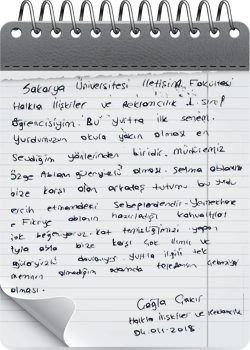 Sakarya Üniversitesi İletişim Fakültesi
Halkla ilişkiler ve Reklamcılık 1. sınıf
öğrencisiyim. Bu yurtta ilk senem.
Yurdumuzun okula yakın olması en
sevdiğim yönlerinden biridir. Müdiremiz
Özge Ablanın güleryüzlü olması. Selma ablanın
bize karşı olan arkadaş tutumu bu yurdu
tercih etmemdeki sebeplerdendir. Yemekhane
Fikriye ablanın hazırladığı kahvaltılar
çok beğeniyoruz. Kat temizliğimizi yapan
abla bize karşı çok ilımlı ve
güleryüzlü davranıyo. Yurtla ilgili tek
olmadığım
olması.
Çağla Çakır
Halkla ilişkiler ve Reklamcılık
04.011.2018